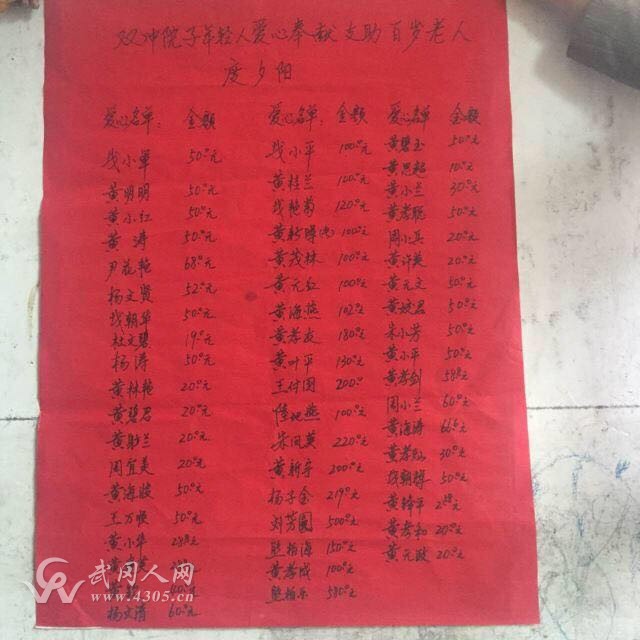 双冲院子年轻人爱心奉献支助百岁老人
度夕阳
爱心名单： 金额
戏小军 50.元
黄明明 50.元
黄小红 50.元
黄涛 50.元
尹花艳 68元
杨文贤 52元
戏朝华 50元
杜文碧 19元
杨涛 50元
黄林艳 20元
黄碧君 20元
黄 兰 20元
周宜美 20元
黄海 50元
王万顺 50元
黄小华 288元
杨文清 60元
爱心名单： 金额
戏小平 100元
黄桂兰 100元
戏艳菊 120元
黄 100元
黄茂林 100元
黄元红 100元
黄海燕 102元
黄孝友 180元
黄叶平 130元
王付国 200
陆地燕 100元
朱凤英 220元
黄新 200元
杨子金 219元
刘芳园 500元
熊柏海 150元
黄孝成 100元
熊柏乐 580元
爱心名单 金额
黄碧玉 50元
黄思超 10元
黄小兰 30元
黄孝聪 50元
周小 20元
黄许英 20元
黄元文 50元
黄姣君 50元
朱小芳 50元
黄小平 50元
黄孝剑 588元
周小兰 60元
黄海涛 666元
黄孝 30元
戏朝辉 50元
黄锋平 288元
黄孝和 20元
黄元政 20元
武冈人网
www.4305.cn